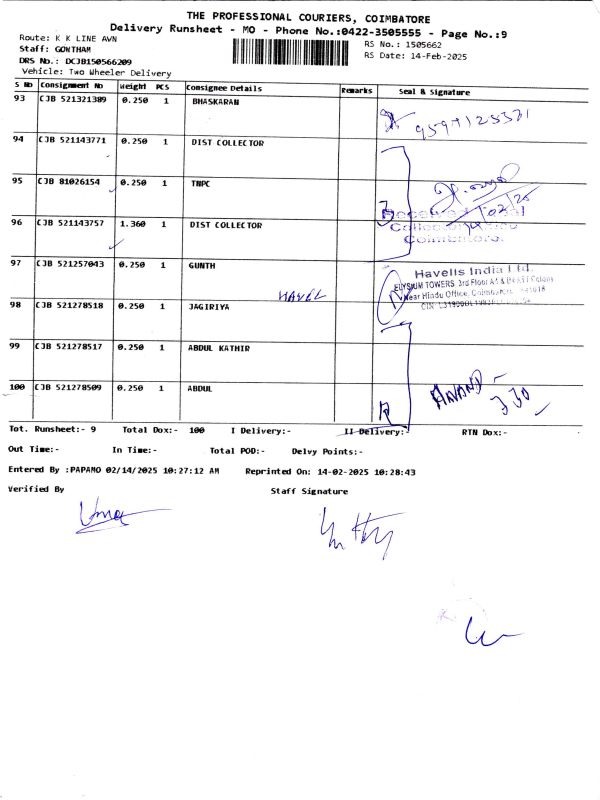 THE PROFESSIONAL COURIERS, COIMBATORE
Delivery Runsheet - MO - Phone No.:0422-3505555 - Page No.:9
Route: K K LINE AVN
RS No.: 1505662
Staff: GOWTHAM
RS Date: 14-Feb-2025
DRS No.: DCJB150566209
Vehicle: Two Wheeler Delivery
S No Consignment No Weight PCS Consignee Details Remarks Seal & Signature
93 CJB 521321389 0.250 1 BHASKARAN
94 CJB 521143771 0.250 1 DIST COLLECTOR
95 CJB 81026154 0.250 1 TNPC
96 CJB 521143757 1.360 1 DIST COLLECTOR
Coimbatore.
97 CJB 521257043 0.250 1 GUNTH
Havells India Ltd.
ELYSIUM TOWERS, 3rd Floor
Near Hindu Office,
HAVEL
98 CJB 521278518 0.250 1 JAGIRIYA
99 CJB 521278517 0.250 1 ABDUL KATHIR
100 CJB 521278509 0.250 1 ABDUL
ANAND - 330
Tot. Runsheet:- 9 Total Dox:- 100 I Delivery:- II Delivery:- RTN Dox:-
Out Time:- In Time:- Total POD:- Delvy Points:-
Entered By :PAPAMO 02/14/2025 10:27:12 AM Reprinted On: 14-02-2025 10:28:43
Verified By Staff Signature
Uma